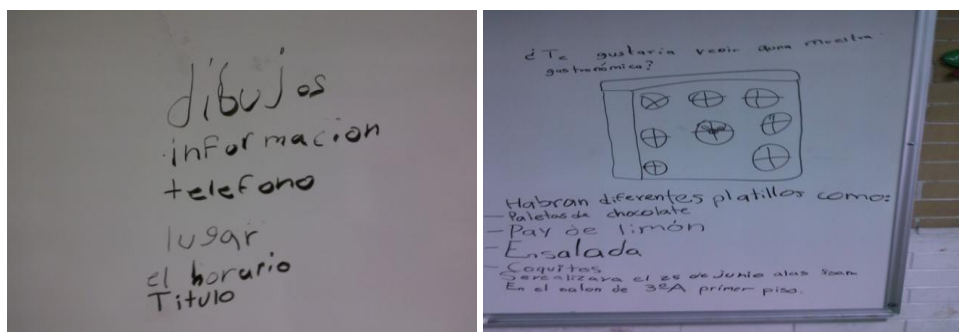 dibujos
informacion
telefono
lugar
el horario
Titulo
¿Te gustaria venir auna muestra
gastronómica?
Habran diferentes platillos como:
- Paletas de chocolate
- Pay de limón
- Ensalada
- Coquitos
Serealizara el 25 de Junio alas 8:00am
En el salon de 3ºA primer piso.